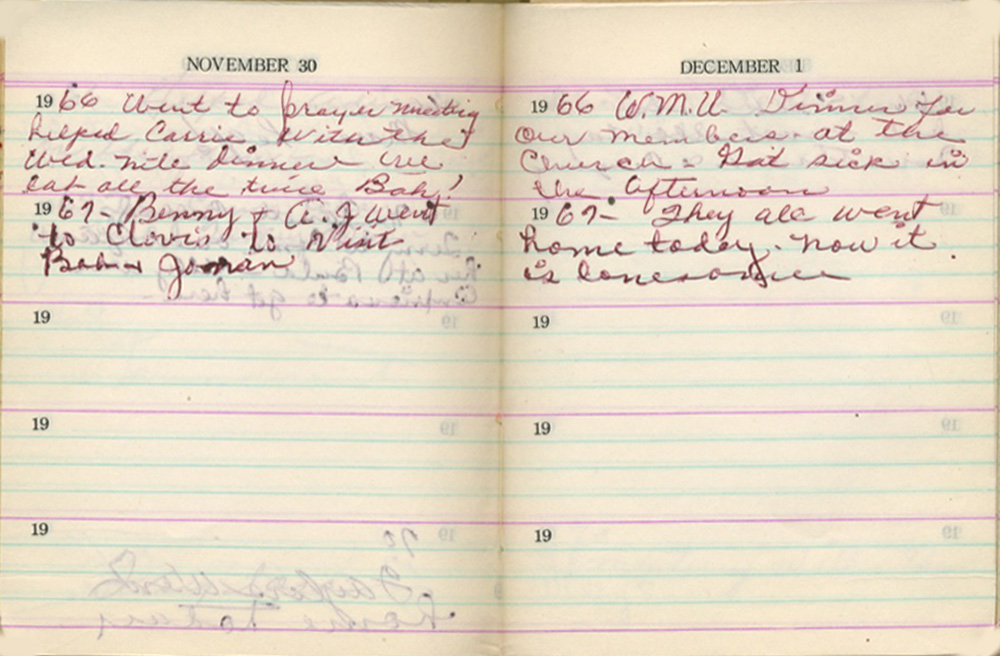 NOVEMBER 30
1966 Went to prayer meeting
helped Carrie With the
Wed. nite dinner we
eat all the time Bah!
1967- Benny + A. J went
to Clovis to Visit
Bob +
19
19
19
DECEMBER 1
1966 W.M.U. Dinner for
our members. at the
Church. Got sick in
the afternoon
1967- They all went
home today. now it
is lonesome
19
19
19